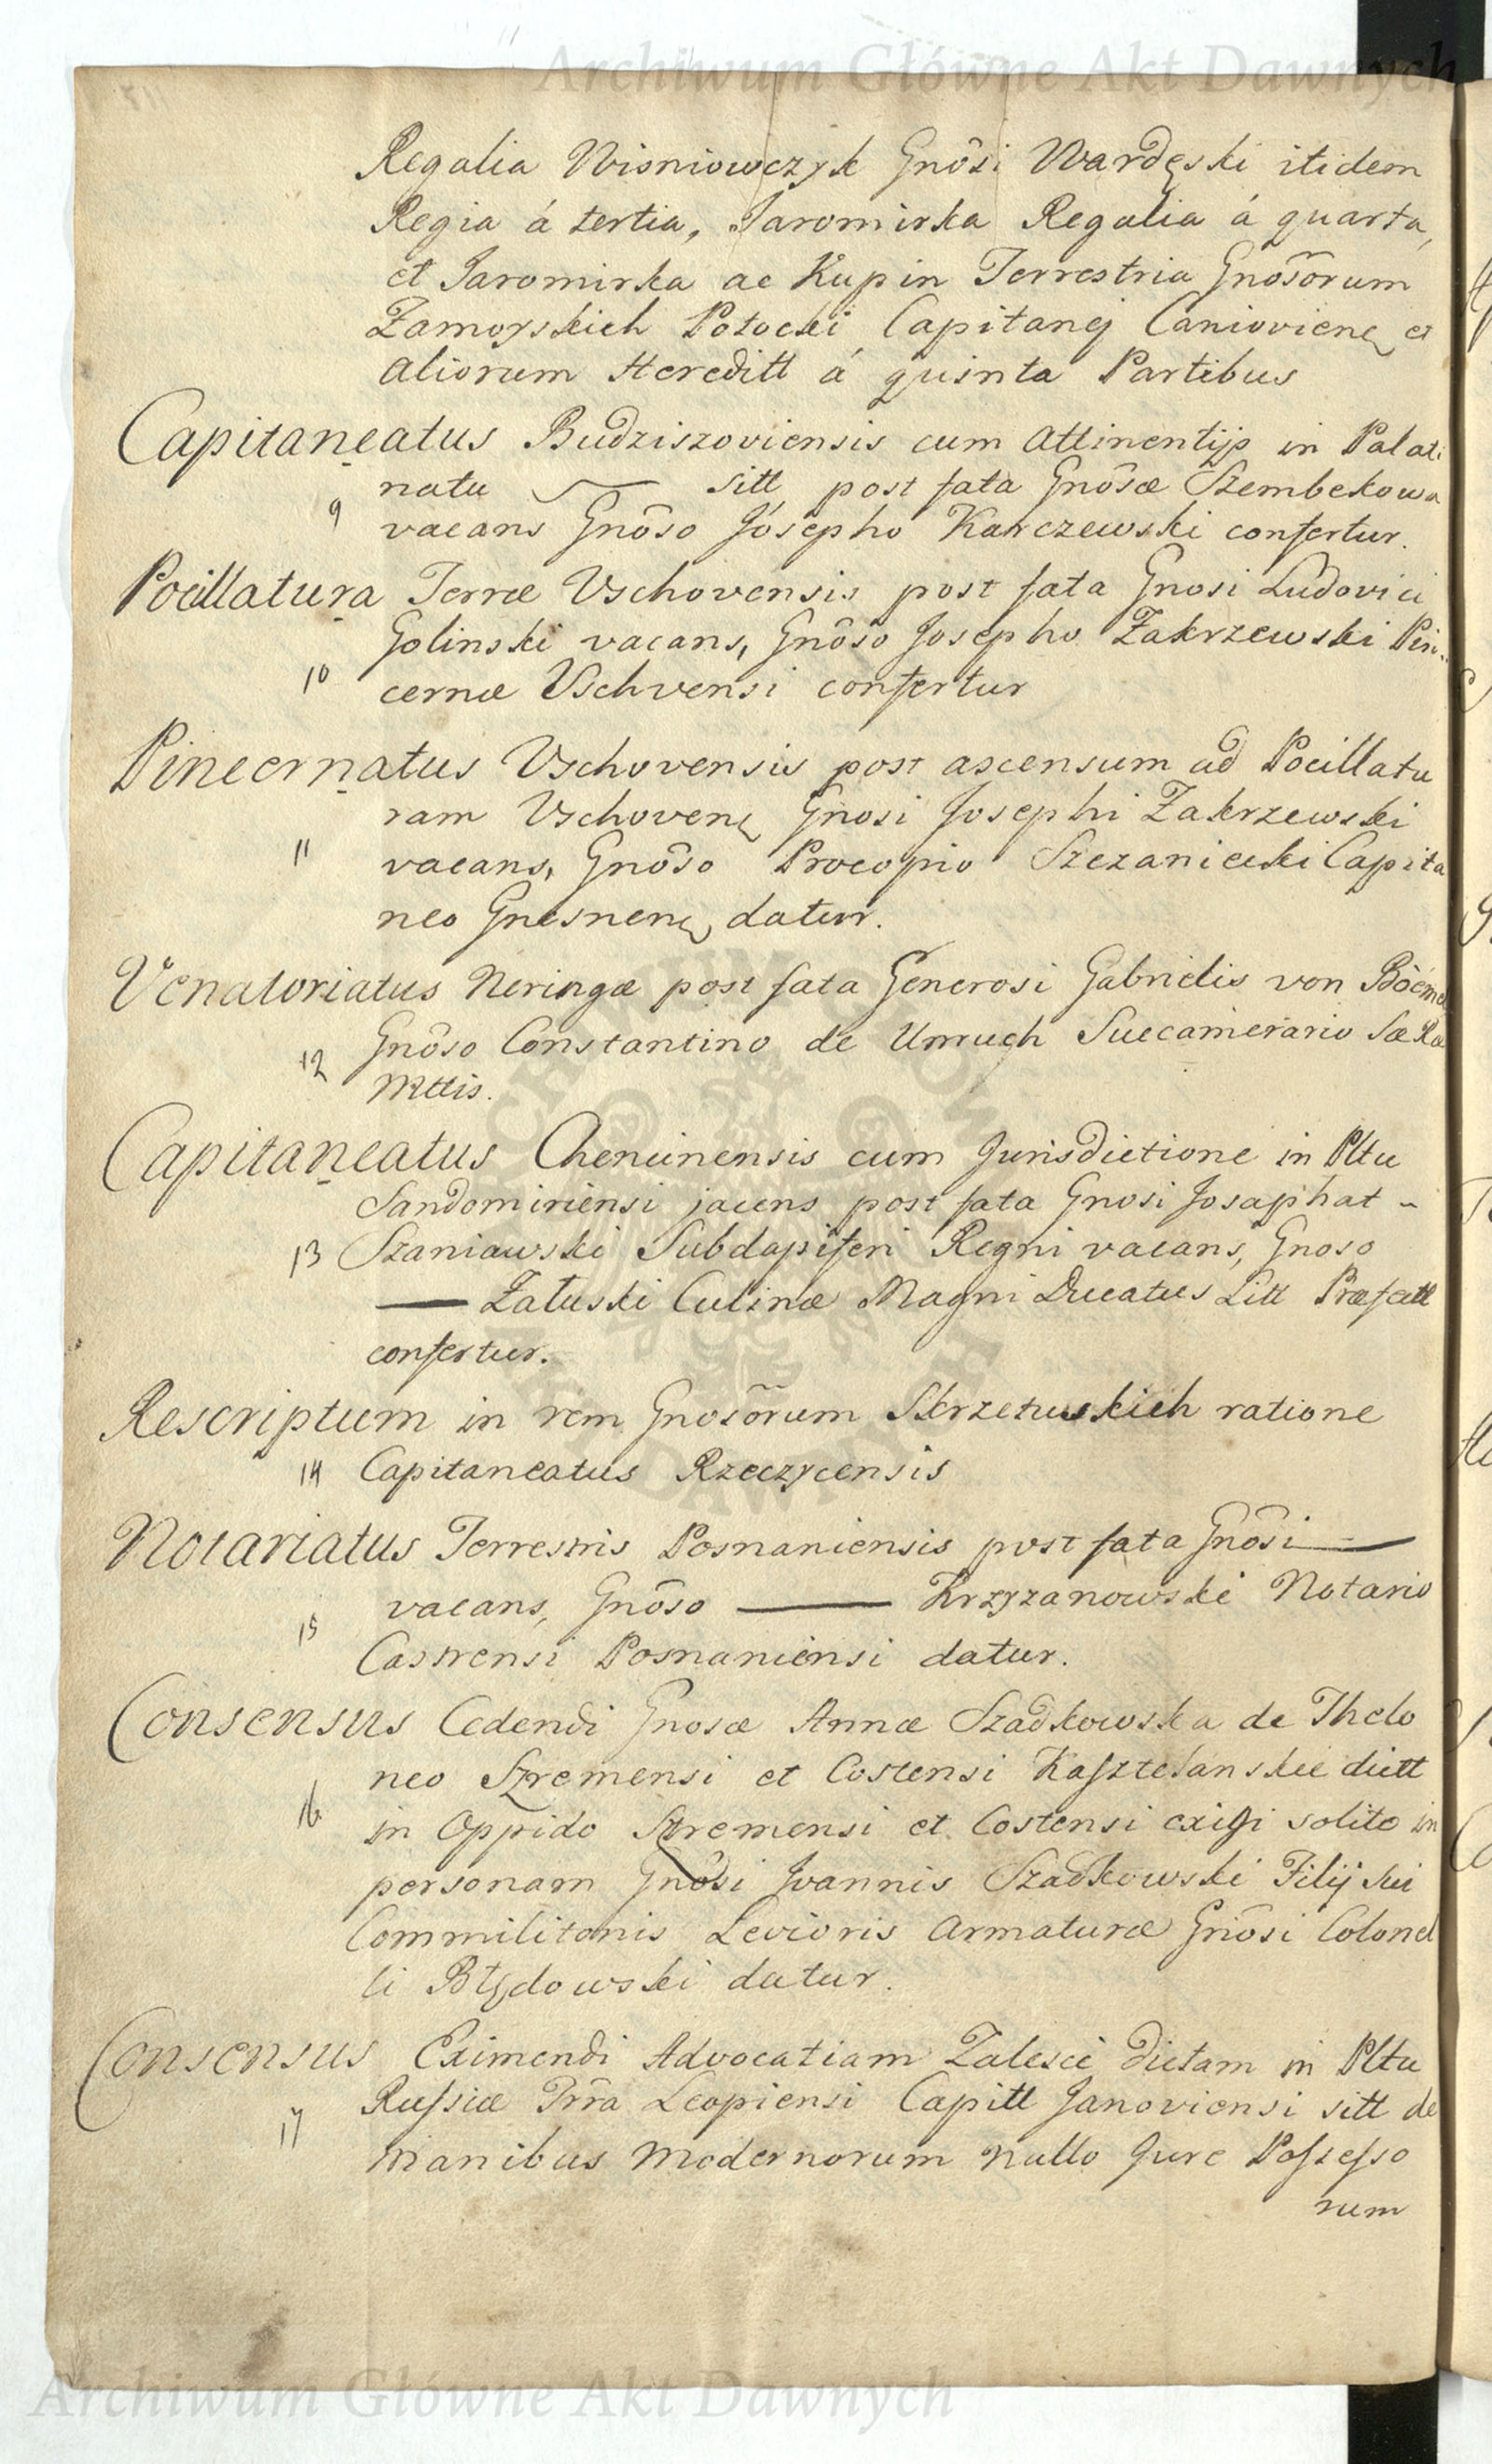 Archiwum Główne Akt Dawnych
Regalia Wisniowczyk Gnôsi Wardęski itidem
Regia á tertia, Jaromirka Regalia á quarta,
et Jaromirka ac Kupin Terrestria Gnosõrum
Zamoyskich Potocki Capitanej Canioviene et
aliorum Hereditt á quinta Partibus
Capitaneatus Budziszoviensis cum attinentijs in Palati
natu sitt post fata Gnôsæ Szembekowa
9 vacans Gnôso Jósepho Karczewski confertur.
Pocillatura Terræ Vschovensis post fata Gnosi Ludovici
Golinski vacans, Gnôso Josepho Zakrzewski Pin
10 cernæ Vschvensi confertur
Pincernatus Vschovensis post ascensum ad Pocillatu
ram Vschovene Gnosi Josephi Zakrzewski
11 vacans, Gnôso Procopio Szczaniecki Capita
neo Gnesnene datur.
Venatoriatus Neringæ post fata Generosi Gabrielis von
12 Gnôso Constantino de Unruch Succamerario Sæ Ræ
Mttis.
Capitaneatus Chencinensis cum Jurisdictione in Pltu
Sandomiriensi jacens post fata Gnosi Josaphat
13 Szaniawski Subdapiferi Regni vacans, Gnoso
— Załuski Culinæ Magni Ducatus Litt Præfectt
confertur.
Rescriptum in rem Gnosõrum Skrzetuskich ratione
14 Capitaneatus Rzeczycensis
Notariatus Terrestris Posnaniensis post fata Gnôsi —
15 vacans, Gnôso — Krzyzanowski Notario
Castrensi Posnaniensi datur.
Consensus Cedendi Gnosæ Annæ Szadkowska de Thelo
neo Szremensi et Costensi Kasztelanskie dictt
16 in Oppido Szremensi et Costensi exigi solito in
personam Gnôsi Joannis Szadkowski Filij sui
Commilitonis Levioris Armaturæ Gnôsi Colonel
li Błędowski datur.
Consensus Eximendi Advocatiam Zalesie dictam in Pltu
17 Russiæ Trra Leopiensi Capitt Janoviensi sitt de
manibus modernorum nullo Jure Possesso
rum
Archiwum Główne Akt Dawnych